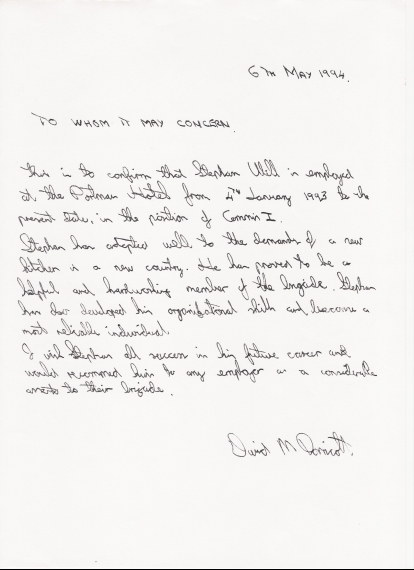 6TH MAY 1994.
TO WHOM IT MAY CONCERN.
This is to confirm that Stephan Will is employed
at the Portman Hotel from 4th January 1993 to the
present date, in the position of Commis I.
Stephan has adapted well to the demands of a new
kitchen in a new country. He has proved to be a
helpful and hardworking member of the brigade. Stephan
has also developed his organisational skills and become a
most reliable individual.
I wish Stephan all success in his future career and
would recommend him to any employer as a considerable
to their brigade.
David M